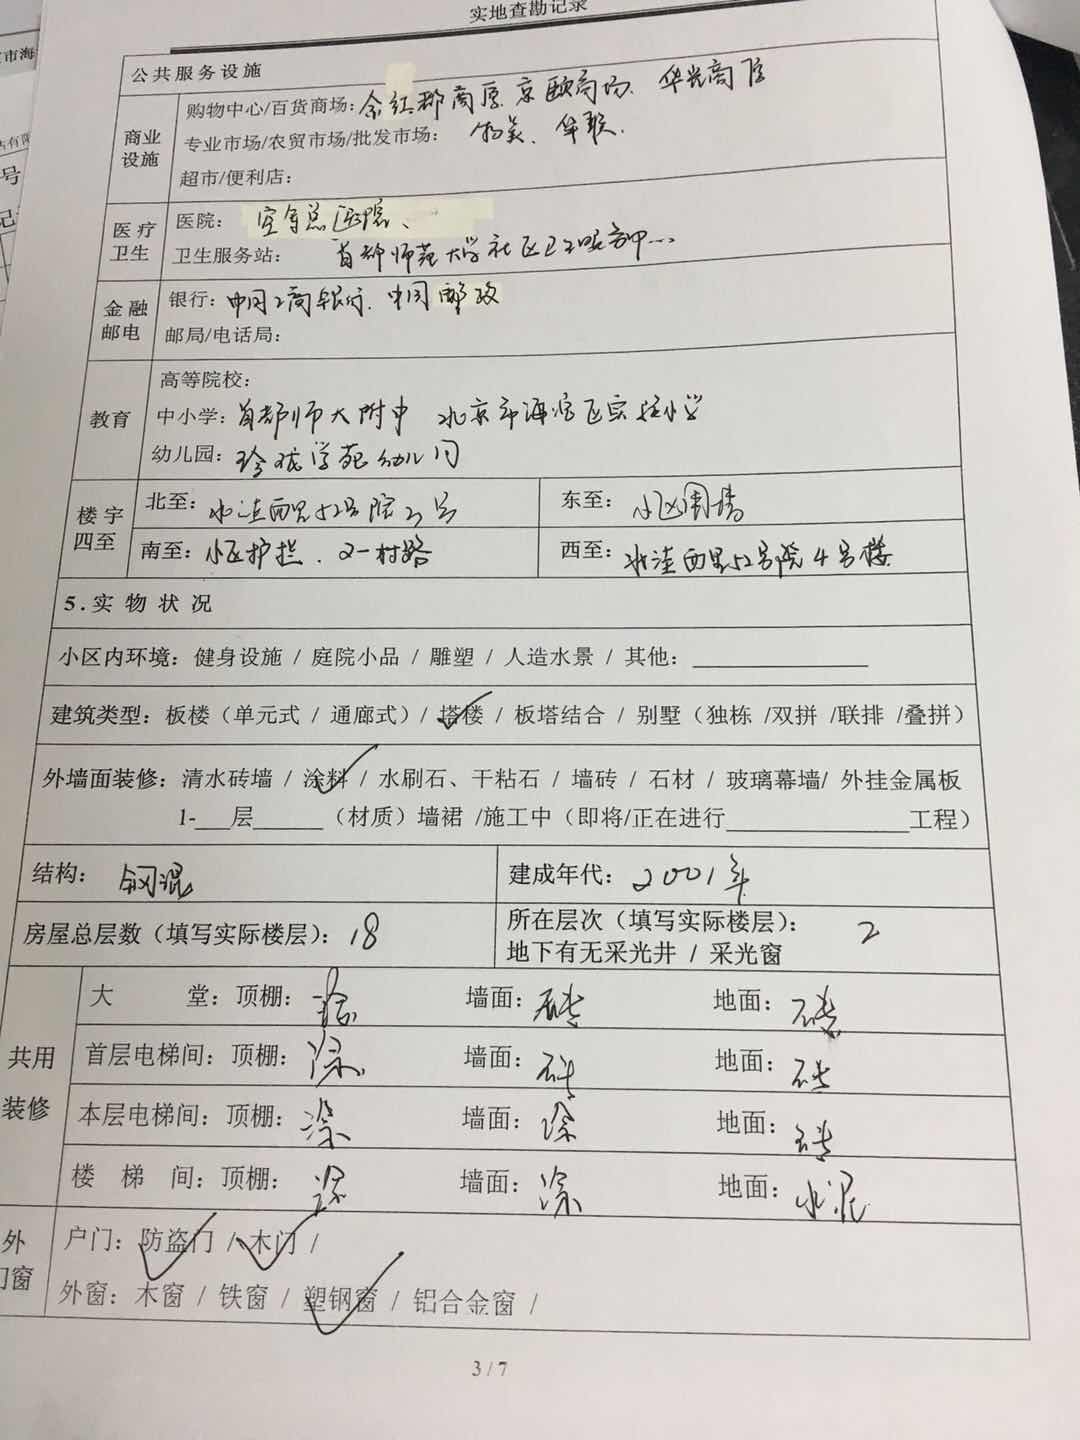 实地查勘记录
市海
公共服务设施
商业设施
购物中心/百货商场：余红郡商厦、京欧商场、华光商厦
专业市场/农贸市场/批发市场：物美、华联、
超市/便利店：
医疗卫生
医院：空军总医院、
卫生服务站：首都师范大学社区卫生服务中心
金融邮电
银行：中国工商银行、中国邮政
邮局/电话局：
教育
高等院校：
中小学：首都师大附中 北京市海淀区实验小学
幼儿园：玲珑学苑幼儿园
楼宇四至
北至：水洼西里52号院3号 东至：小区围墙
南至：小区护栏、又一村路 西至：北洼西里52号院4号楼
5.实物状况
小区内环境：健身设施 / 庭院小品 / 雕塑 / 人造水景 / 其他：
建筑类型：板楼（单元式 / 通廊式）/ 塔楼 / 板塔结合 / 别墅（独栋 /双拼 /联排 /叠拼）
外墙面装修：清水砖墙 / 涂料 / 水刷石、干粘石 / 墙砖 / 石材 / 玻璃幕墙/ 外挂金属板
1-___层______（材质）墙裙 /施工中（即将/正在进行________________工程）
结构：钢混 建成年代：2001年
房屋总层数（填写实际楼层）：18 所在层次（填写实际楼层）：2
地下有无采光井 / 采光窗
共用装修
大堂：顶棚： 墙面：砖 地面：砖
首层电梯间：顶棚：涂 墙面：砖 地面：砖
本层电梯间：顶棚：涂 墙面：涂 地面：砖
楼梯间：顶棚：涂 墙面：涂 地面：水泥
外门窗
户门：防盗门 / 木门 /
外窗：木窗 / 铁窗 / 塑钢窗 / 铝合金窗 /
3 / 7